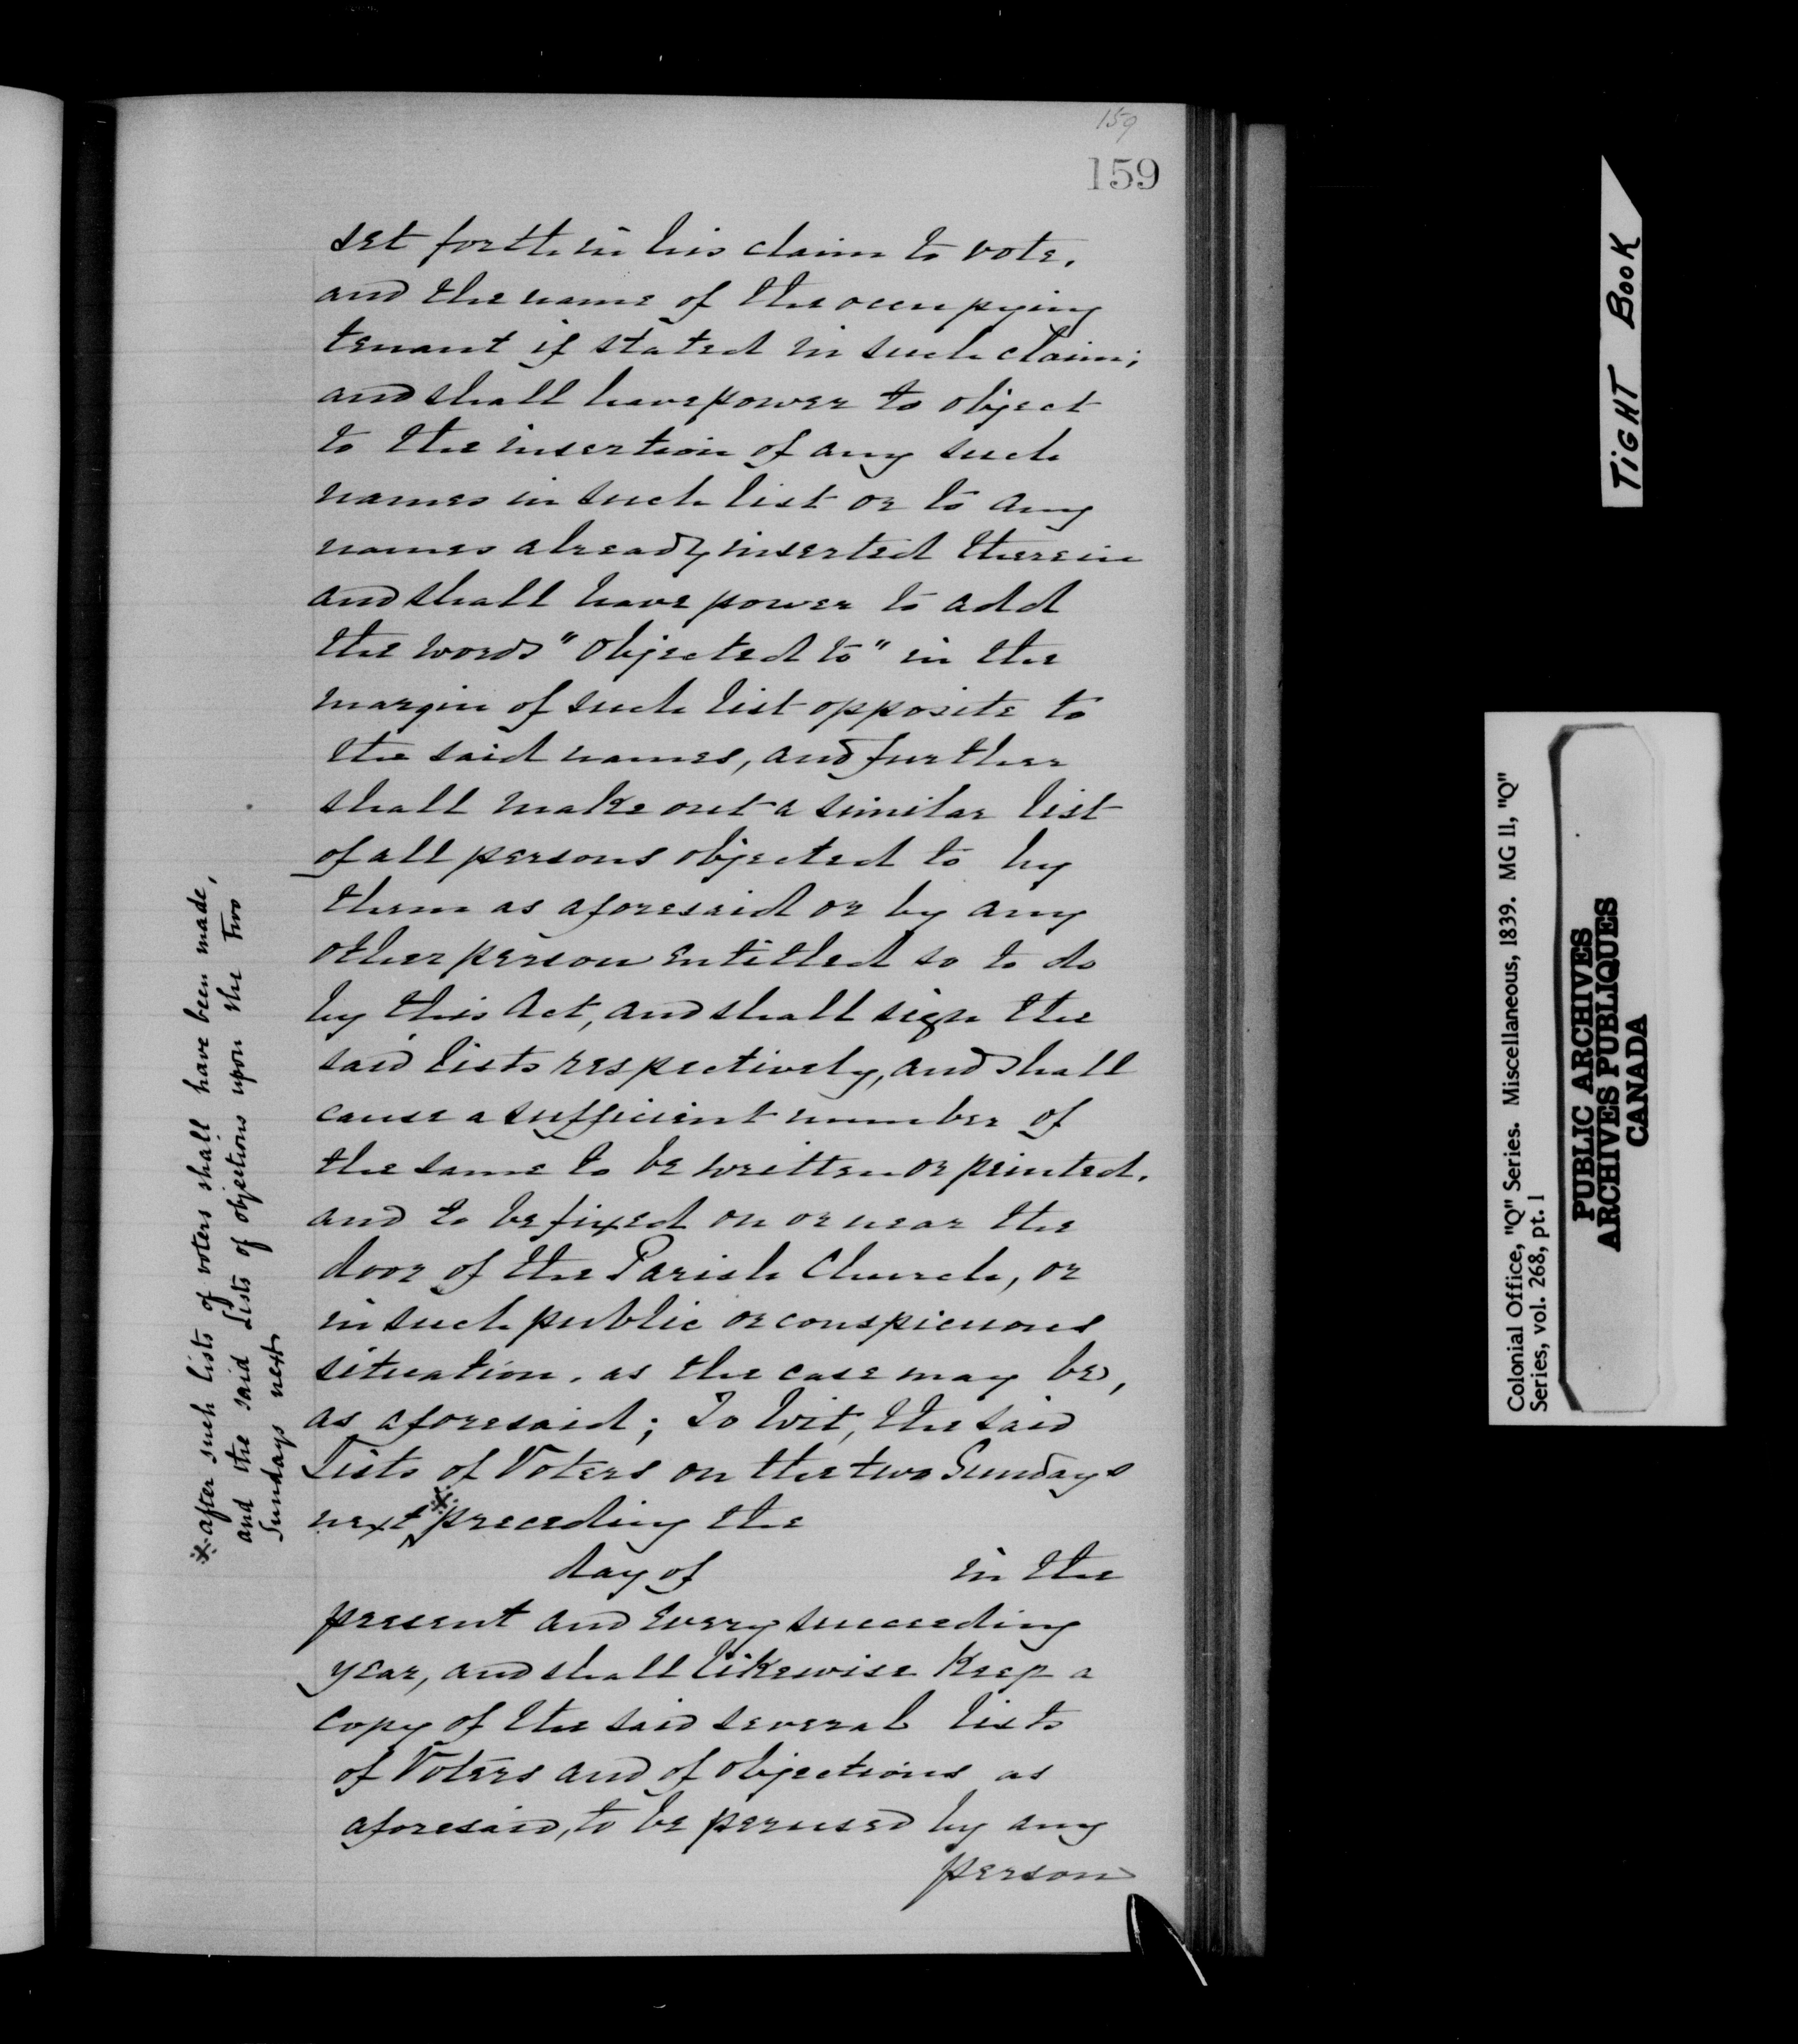 159
159
set forth in his claim to vote,
and the name of the occupying
tenant if stated in such claim;
and shall have power to object
to the insertion of any such
names in such list or to any
names already inserted therein
and shall have power to add
the words "objected to" in the
margin of such list opposite to
the said names, and further
shall make out a similar list
of all persons objected to by
them as aforesaid or by any
other person entitled so to do
by this Act, and shall sign the
said lists respectively, and shall
cause a sufficient number of
the same to be written or printed.
and to be fixed on or near the
door of the Parish Church, or
in such public or conspicuous
situation, as the case may be,
as aforesaid; To wit, the said
Lists of Voters on the two Sundays
next ※ preceding the
day of in the
present and every succeeding
year, and shall likewise keep a
copy of the said several lists
of Voters and of objections as
aforesaid, to be perused by any
person
※ after such lists of voters shall have been made,
and the said Lists of objections upon the two
Sundays next
TIGHT BOOK
Colonial Office, "Q" Series. Miscellaneous, 1839. MG 11, "Q"
Series, vol. 268, pt. 1
PUBLIC ARCHIVES
ARCHIVES PUBLIQUES
CANADA